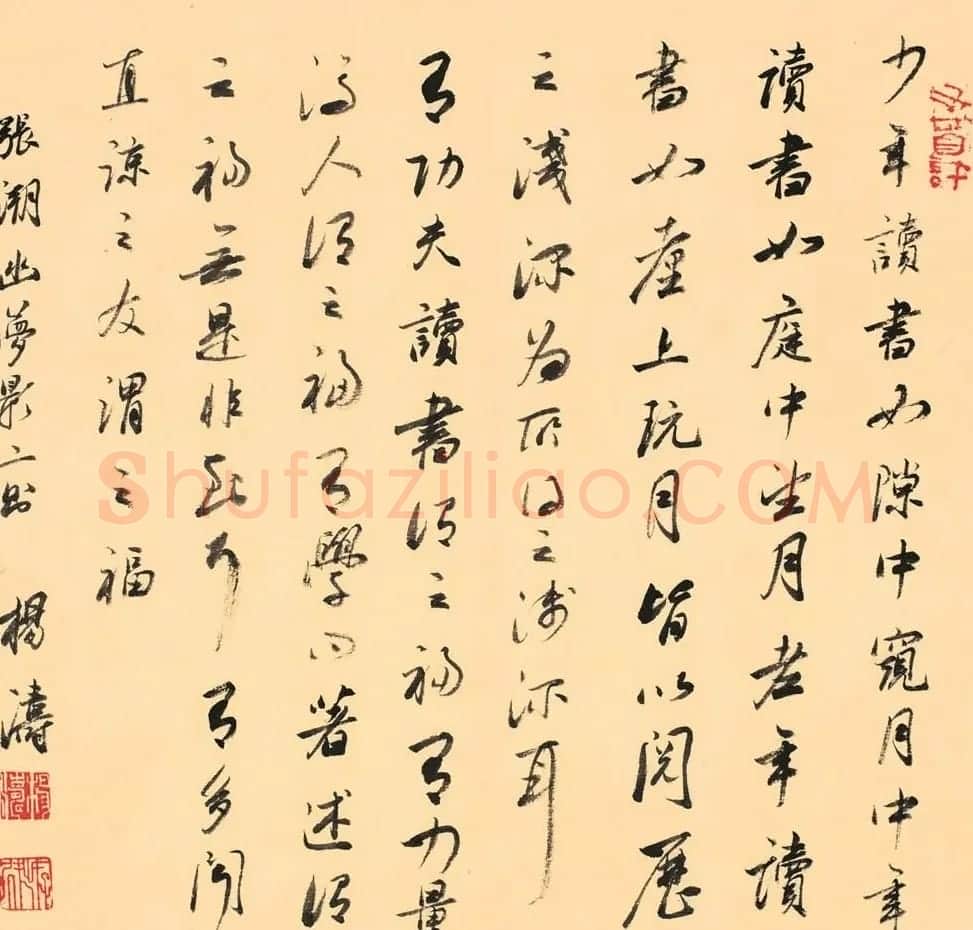 少年讀書如隙中窺月中年
讀書如庭中望月老年讀
書如臺上玩月皆以閱歷
之淺深為所得之淺深耳
有功夫讀書謂之福有力量
濟人謂之福有學問著述謂
之福無是非到耳有多聞
直諒之友謂之福
張潮幽夢影二則 楊濤
Shufaziliao.COM